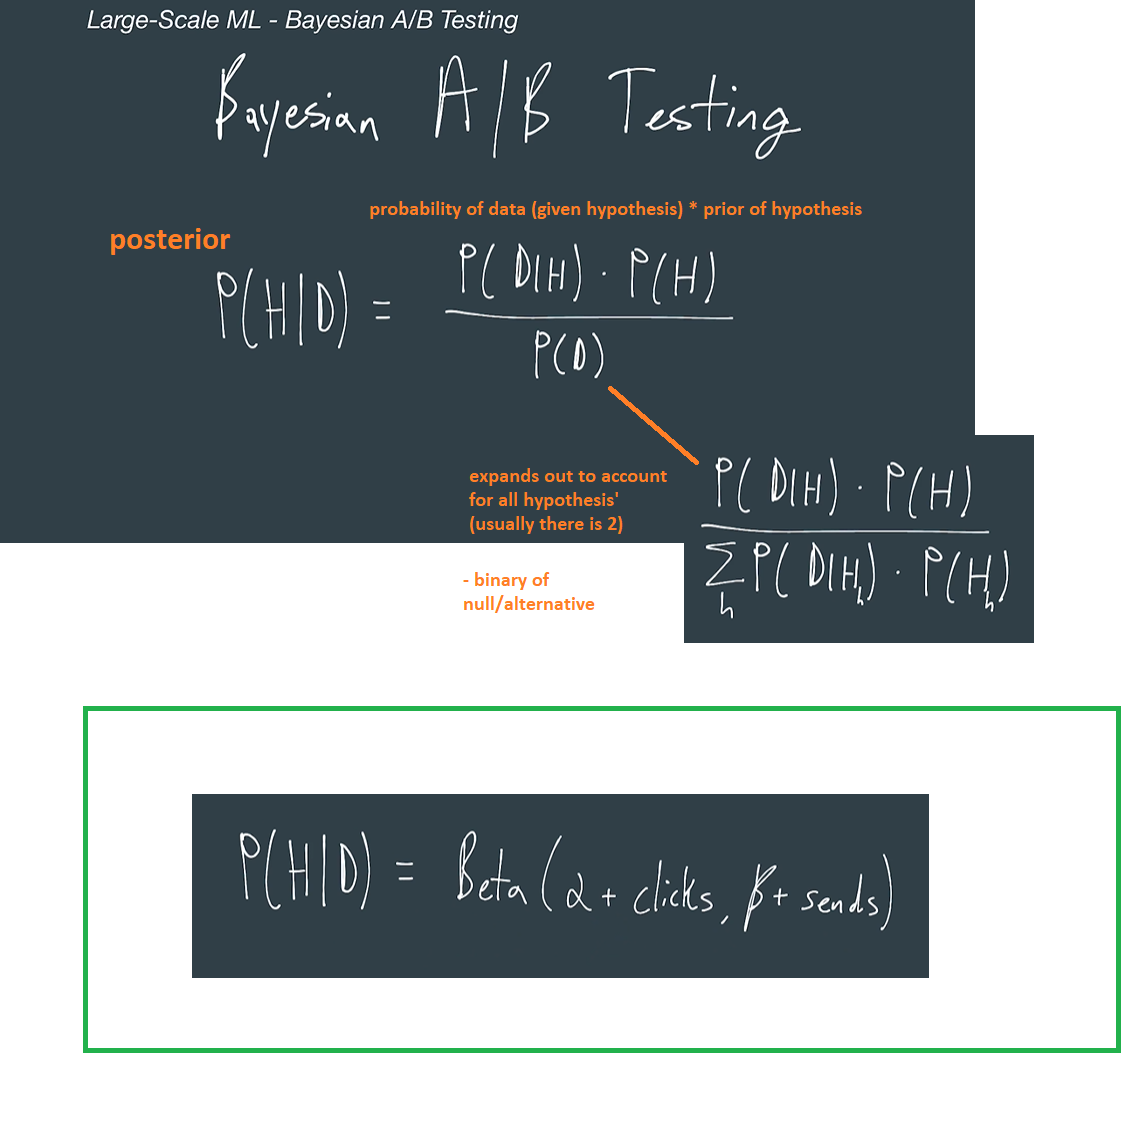 Large-Scale ML - Bayesian A/B Testing
Bayesian A/B Testing
probability of data (given hypothesis) * prior of hypothesis
posterior
P(H|D) = P(D|H) · P(H)
P(D)
expands out to account
for all hypothesis'
(usually there is 2)
- binary of
null/alternative
P(D|H) · P(H)
∑ P(D|Hₕ) · P(Hₕ)
h
P(H|D) = Beta(α + clicks, β + sends)